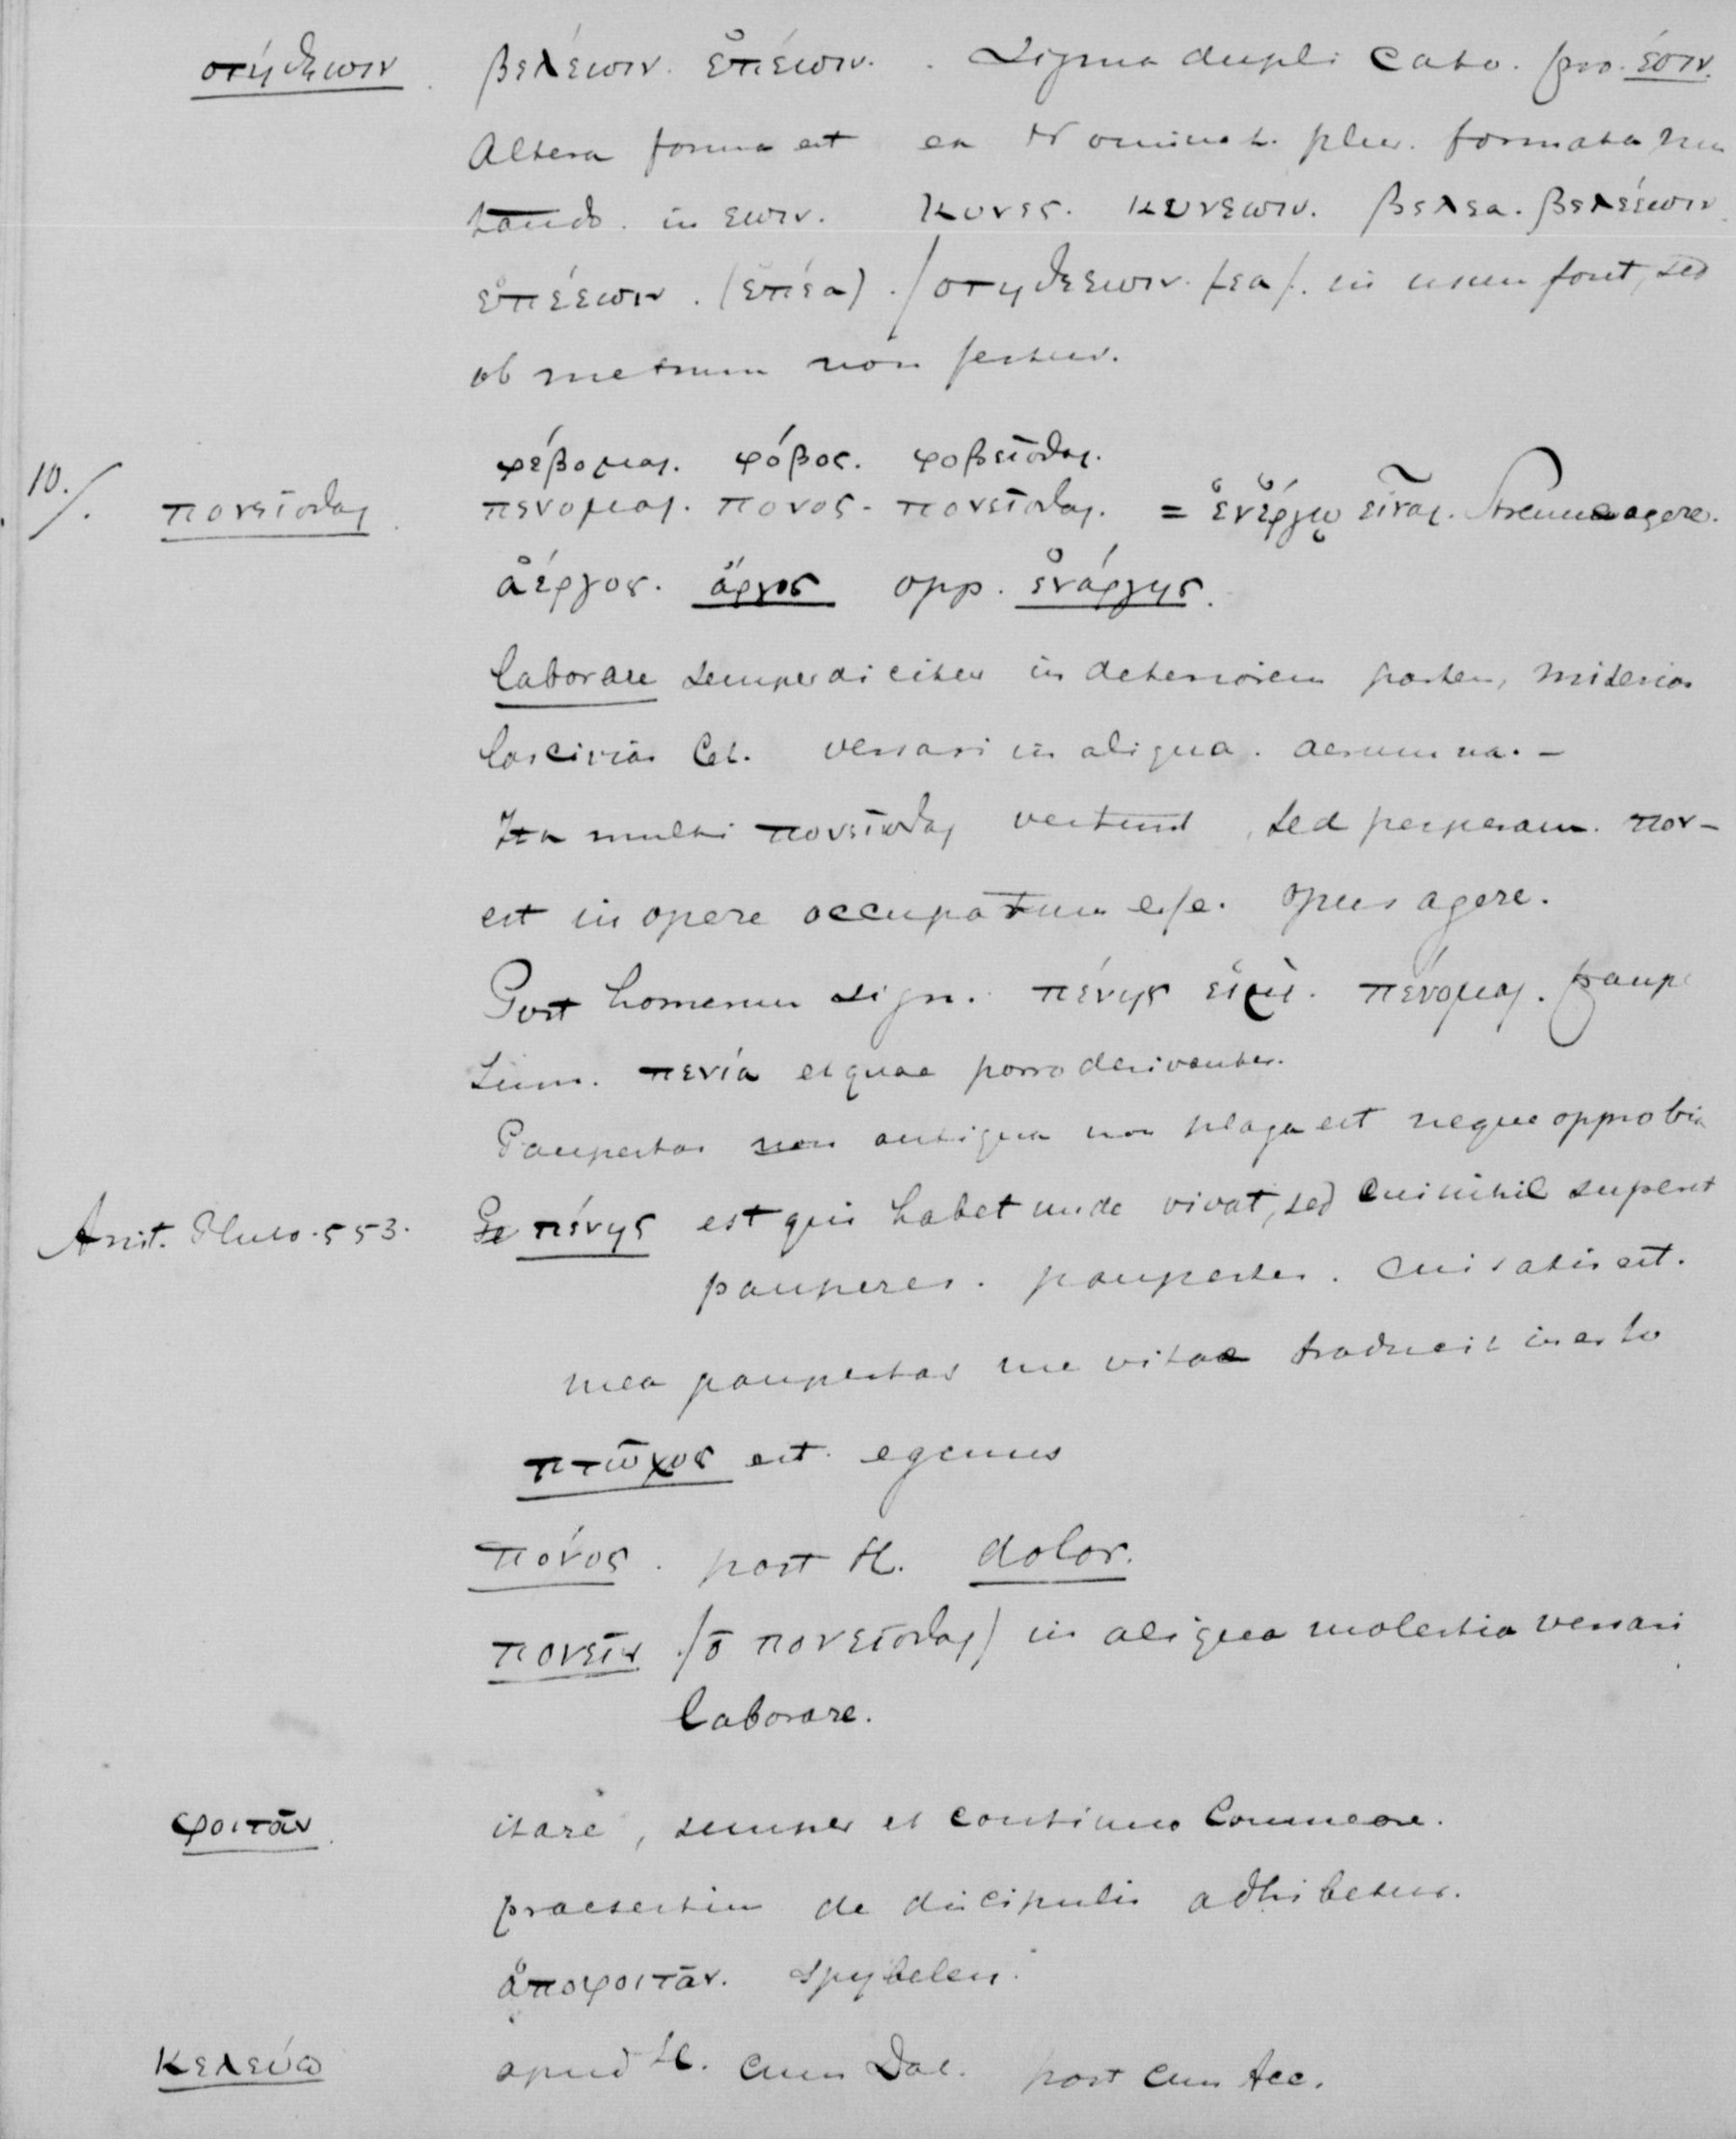 στήθεσσιν βελέεσσιν. ἐπέεσσιν. Sigma dupli cato. pro. έσιν.
Altera forma est ex Nominat. plur. formata mu
tando. in εσσιν. κυνες. κυνεσσιν. βελεα. βελέεσσιν
ἐπέεσσιν. (ἐπέα). / στηθεεσσιν. (εα). in usu foret, sed
ob metrum non fertur.
φέβομαι. φόβος. φοβεῖσθαι.
10./. πονεῖσθαι. πενομαι. πονος. πονεῖσθαι. = ἐν ἔργῳ εἶναι. Strenue agere.
ἀέργος. ἄργος opp. ἐνάργης.
laborare semper dicitur in deteriorem partem, miseria
lascivia cet. versari in aliqua. aerumna. –
Ita multi πονεῖσθαι vertunt, sed perperam. πον–
est in opere occupatum esse. opus agere.
Post homerum sign. πένης εἰμὶ. πενόμαι. paupe
sum. πενία et quae porro derivantur.
Paupertas non antiqua non plaga est neque opprobria
Arist. Pluto. 553. πένης est qui habet unde vivat, sed cui nihil superest
pauperes. paupertas. cui satis est.
mea paupertas me vitae traducit inerti
πτῶχος est egenus
πόνος. post H. dolor.
πονεῖν (ō πονεῖσθαι) in aliqua molestia versari
laborare.
φοιτᾶν itare, semper et continuo commeare.
praesertim de discipulis adhibetur.
ἀποφοιτᾶν. spijbelen.
κελεύω apud H. cum Dat. post cum Acc.